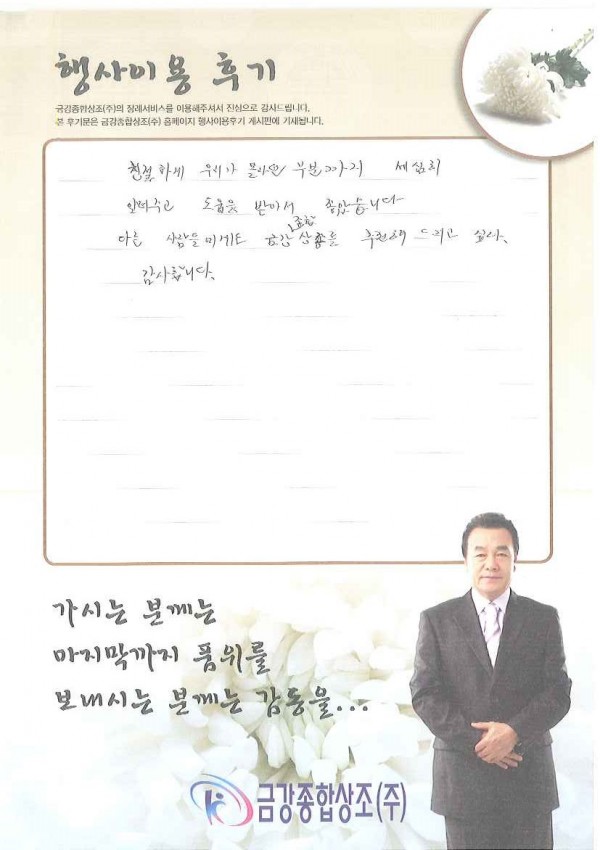 행사이용 후기
금강종합상조(주)의 장례서비스를 이용해주셔서 진심으로 감사드립니다.
본 후기문은 금강종합상조(주) 홈페이지 행사이용후기 게시판에 기재됩니다.
친절하게 우리가 몰라던 부분까지 세심희
알려주고 도움을 받아서 좋았습니다
종합
다른 사람들에게도 금강 상조를 추천해 드리고 싶다.
감사합니다.
가시는 분께는
마지막까지 품위를
보내시는 분께는 감동을...
금강종합상조(주)